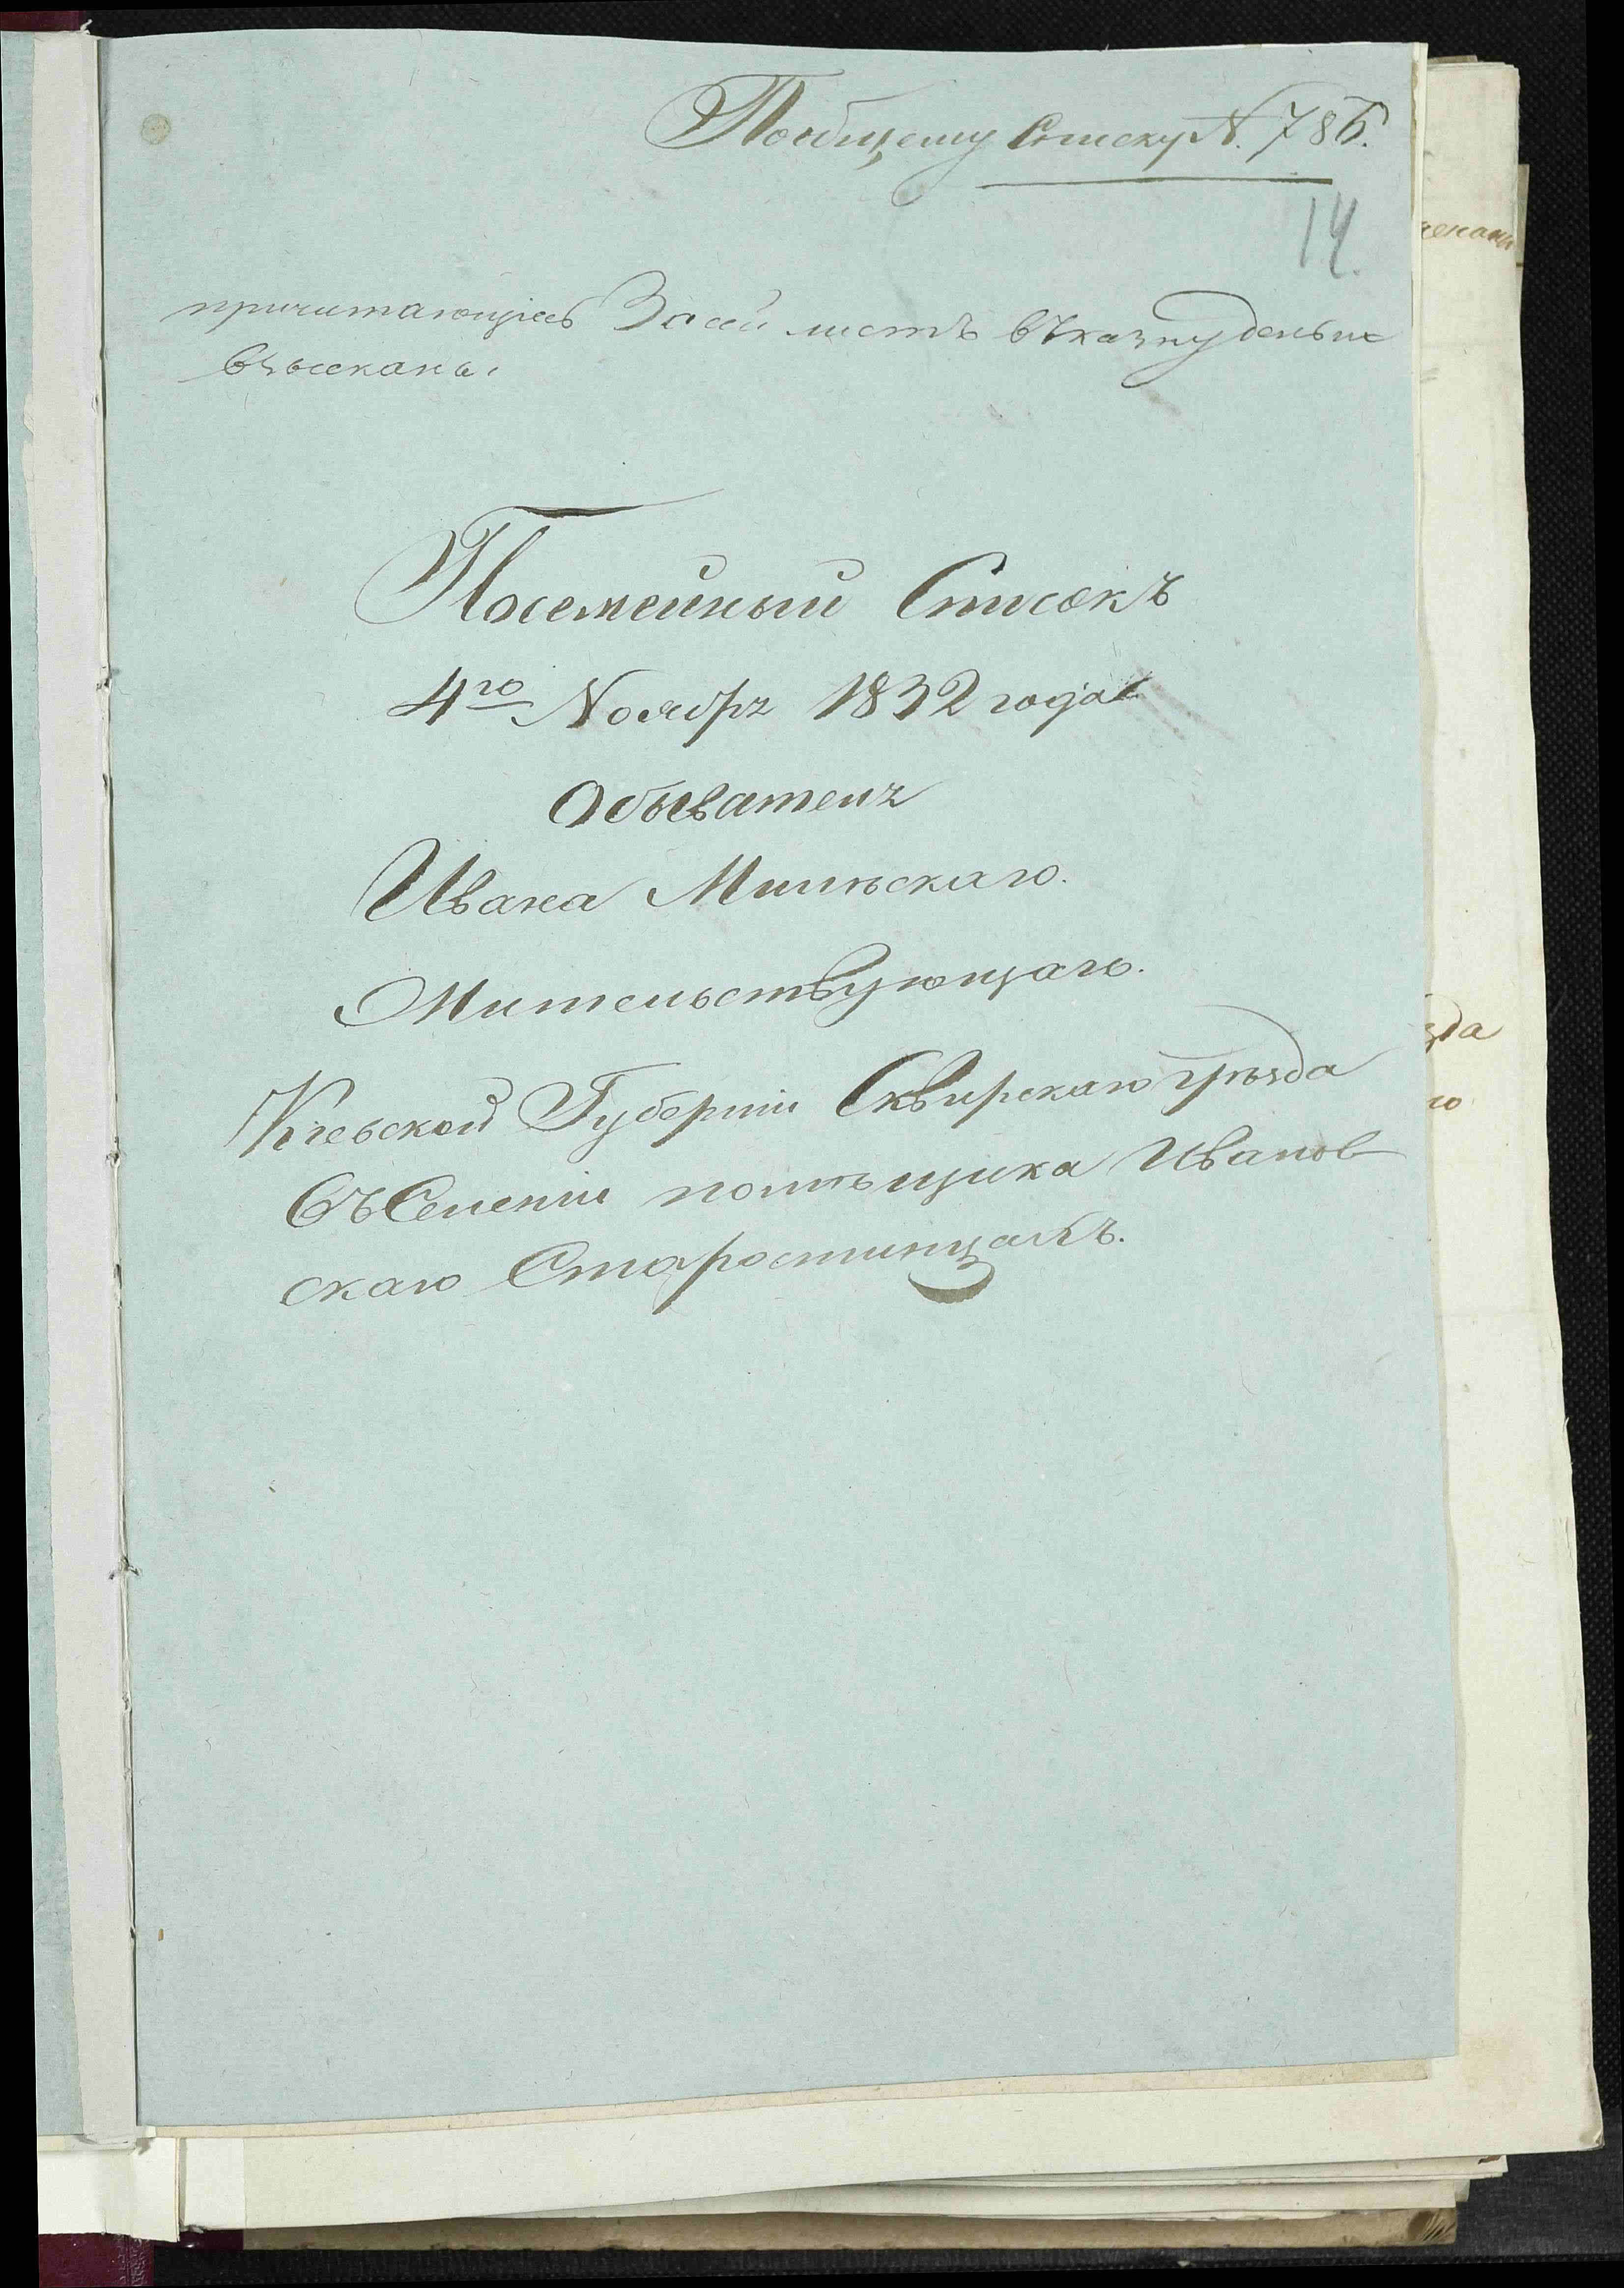 Пообщему Списку N. 786.
14.
причитающіесь За сей листъ въ казну деньги
взысканы
Посемейный Списокъ
4го Ноября 1832 года
Обывателя
Ивана Мильскаго.
Жительствующаго.
Кіевской Губерніи Сквирскаго уѣзда
въ Селеніи помѣщика Иванов
скаго Старостинцахъ.